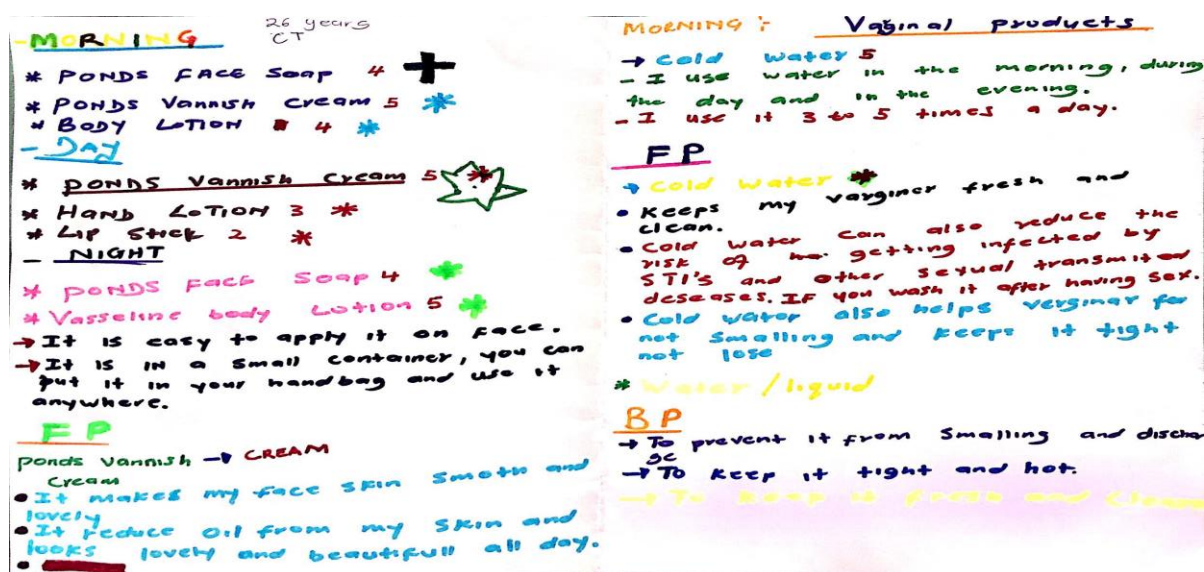 26 years
CT
- MORNING
* PONDS FACE Soap 4
* PONDS Vannish Cream 5 *
* BODY LOTION 4 *
- DAY
* PONDS Vannish Cream 5 *
* HAND LOTION 3 *
* LIP Stick 2 *
- NIGHT
* PONDS FACE Soap 4 *
* Vasseline body Lotion 5 *
→ It is easy to apply it on Face.
→ It is in a small container, you can
put it in your handbag and use it
anywhere.
FP
Ponds Vannish → CREAM
Cream
• It makes my face skin smoth and
lovely
• It reduce oil from my skin and
looks lovely and beautifull all day.
MORNING :- Varginal products
→ Cold water 5
- I use water in the morning, during
the day and in the evening.
- I use it 3 to 5 times a day.
FP
→ Cold water *
• Keeps my varginer fresh and
clean.
• Cold water can also reduce the
risk of getting infected by
STI's and other sexual transmited
deseases. IF you wash it after having sex.
• Cold water also helps verginar for
not Smalling and keeps it tight
not lose
* Water / liquid
BP
→ To prevent it from Smalling and dischar
ge
→ To keep it tight and hot.
→ To keep it fresh and clean